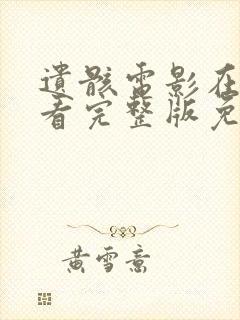 遗骸电影在
看完整版免
黄雪意